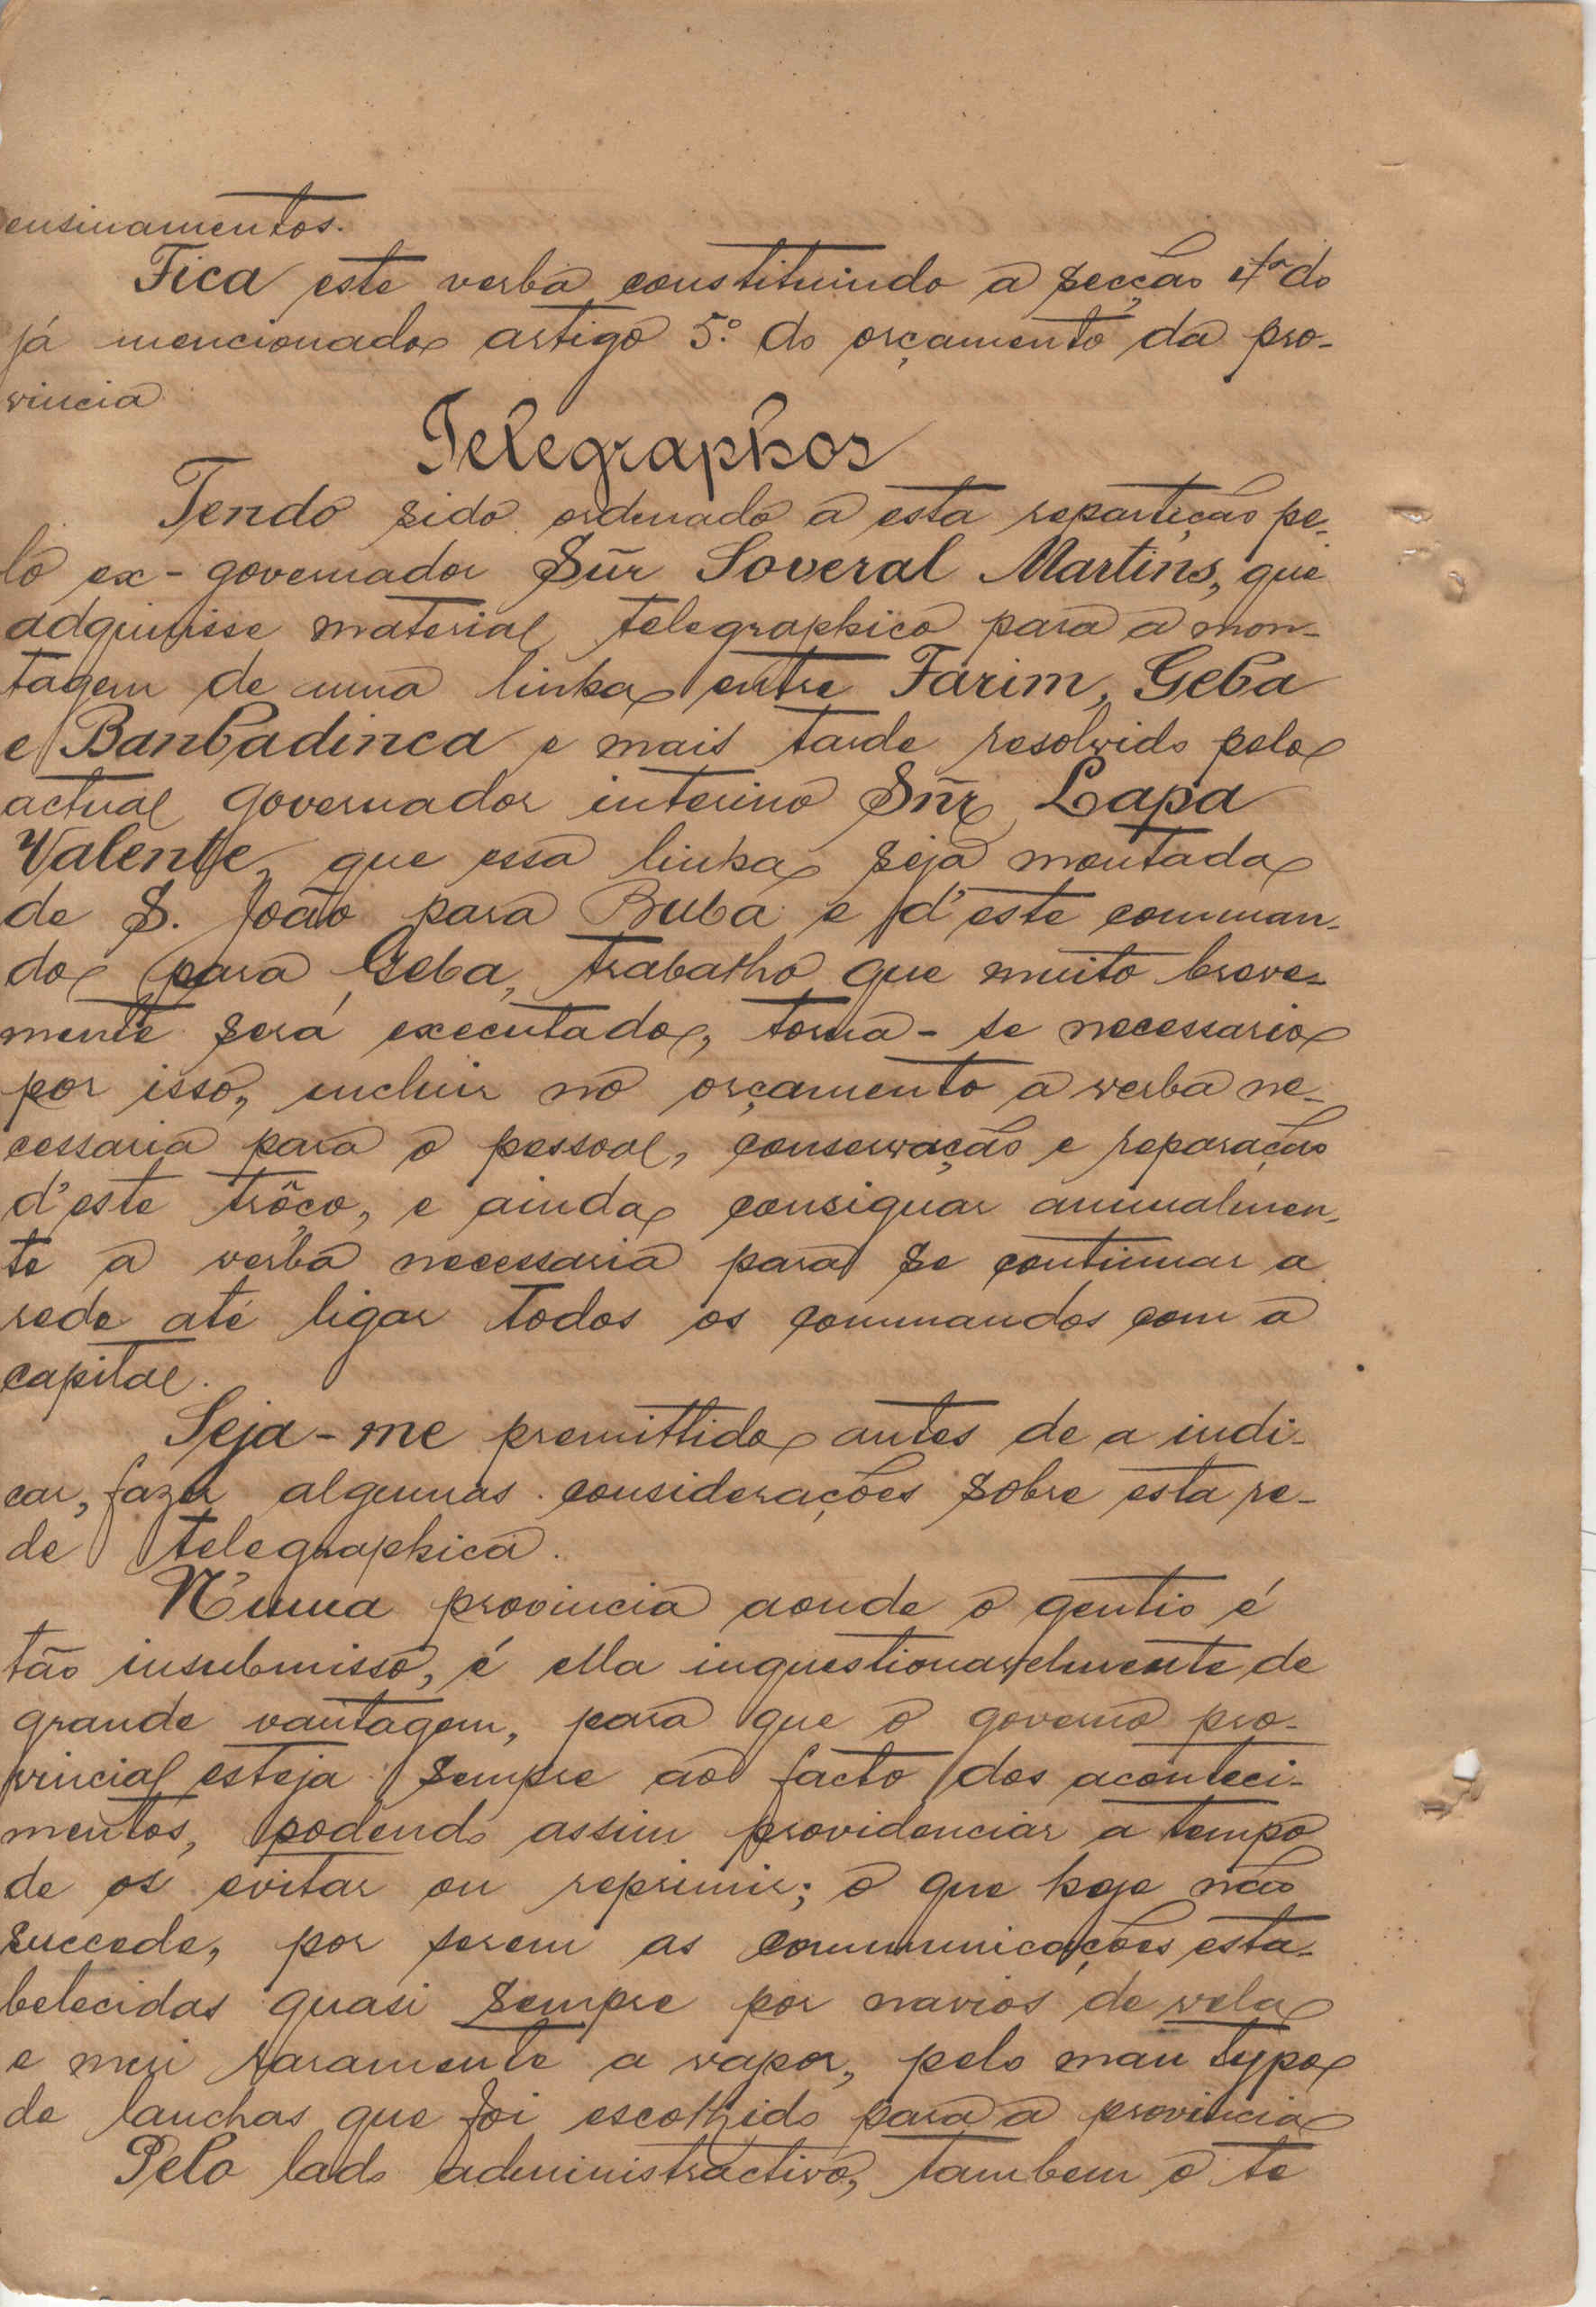 ensinamentos.
Fica este verba constituindo a secção 4ª do
já mencionado artigo 5º do orçamento da pro-
vincia
Telegraphos
Tendo sido ordenado a esta repartição pe-
lo ex-governador Sñr Soveral Martins, que
adquirisse material telegraphico para a mon-
tagem de uma linha entre Farim, Geba
e Banbadinca e mais tarde resolvido pelo
actual governador interino Sñr Lapa
Valente, que essa linha seja montada
de S. João para Buba e d'este comman-
do para Geba, trabalho que muito breve-
mente será executado, torna-se necessario
por isso, incluir no orçamento a verba ne-
cessaria para o pessoal, conservação e reparação
d'este trôço, e ainda consignar annualmen-
te a verba necessaria para se continuar a
rede até ligar todos os commandos com a
capital.
Seja-me premittido antes de a indi-
car, fazer algumas considerações sobre esta re-
de telegraphica.
N'uma provincia aonde o gentio é
tão insubmisso, é ella inquestionavelmente de
grande vantagem, para que o governo pro-
vincial esteja sempre ao facto dos aconteci-
mentos, podendo assim providenciar a tempo
de os evitar ou reprimir; o que hoje não
succede, por serem as communicações esta-
belecidas quasi sempre por navios de vela
e mui raramente a vapor, pelo mau typo
de lanchas que foi escolhido para a provincia
Pelo lado administractivo, tambem o te